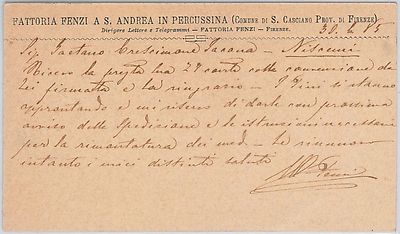 FATTORIA FENZI A S. ANDREA IN PERCUSSINA (COMUNE DI S. CASCIANO PROV. DI FIRENZE)
Dirigere Lettere e Telegrammi — FATTORIA FENZI — FIRENZE.
30.
Sig. Gaetano Crescimone Niscemi
Ricevo la 29 colla commissione da
Lei firmata e La ringrazio. — I Vini si stanno
approntando e mi riservo di darle con prossima
avviso della Spedizione e le istruzioni necessarie
per la rimontatura dei med. — Le rinnovo
intanto i miei distinti saluti
Fenzi